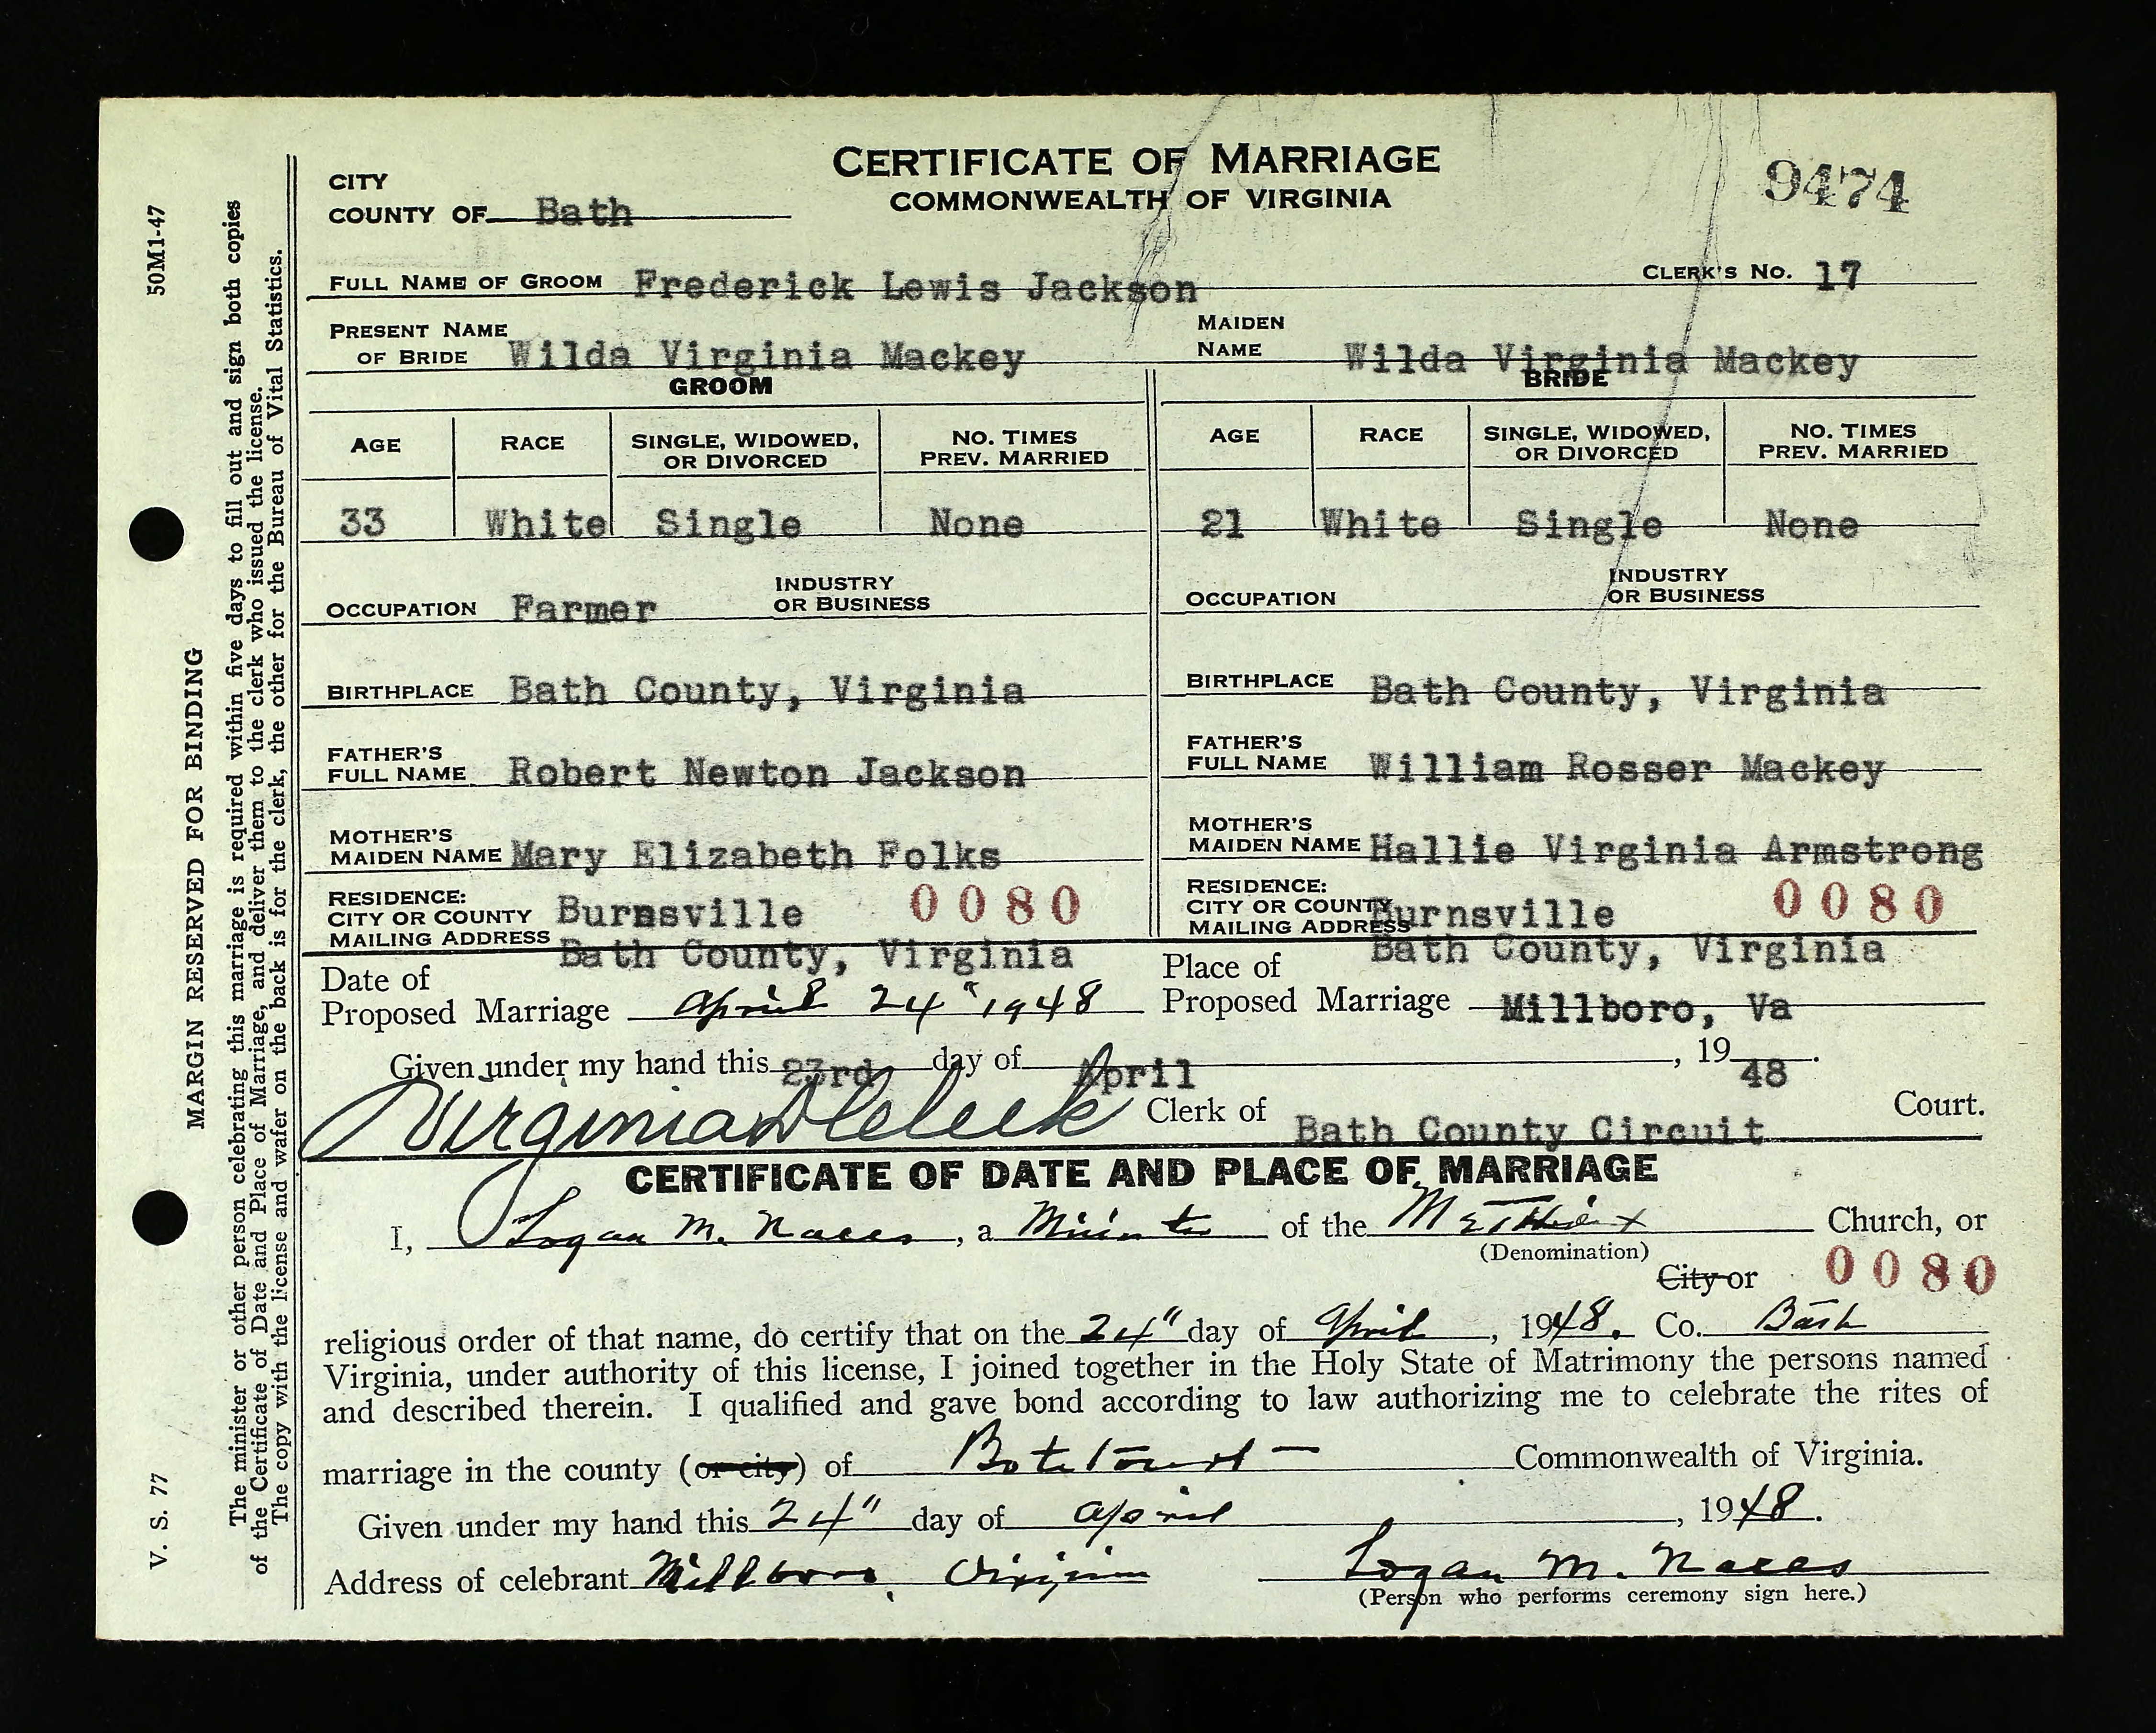 CERTIFICATE OF MARRIAGE
COMMONWEALTH OF VIRGINIA
9474
CITY
COUNTY OF Bath
FULL NAME OF GROOM Frederick Lewis Jackson
CLERK'S NO. 17
PRESENT NAME OF BRIDE Wilda Virginia Mackey
MAIDEN NAME Wilda Virginia Mackey
GROOM
AGE RACE SINGLE, WIDOWED, OR DIVORCED NO. TIMES PREV. MARRIED
33 White Single None
OCCUPATION Farmer INDUSTRY OR BUSINESS
BIRTHPLACE Bath County, Virginia
FATHER'S FULL NAME Robert Newton Jackson
MOTHER'S MAIDEN NAME Mary Elizabeth Folks
RESIDENCE:
CITY OR COUNTY Burnsville 0080
MAILING ADDRESS Bath County, Virginia
BRIDE
AGE RACE SINGLE, WIDOWED, OR DIVORCED NO. TIMES PREV. MARRIED
21 White Single None
OCCUPATION INDUSTRY OR BUSINESS
BIRTHPLACE Bath County, Virginia
FATHER'S FULL NAME William Rosser Mackey
MOTHER'S MAIDEN NAME Hallie Virginia Armstrong
RESIDENCE:
CITY OR COUNTY Burnsville 0080
MAILING ADDRESS Bath County, Virginia
Date of
Proposed Marriage April 24" 1948
Place of
Proposed Marriage Millboro, Va
Given under my hand this 23rd day of April, 1948.
Virginia Cleek Clerk of Bath County Circuit Court.
CERTIFICATE OF DATE AND PLACE OF MARRIAGE
I, Logan M., a Minister of the Methodist Church, or
(Denomination)
City or 0080
religious order of that name, do certify that on the 24" day of April, 1948. Co. Bath
Virginia, under authority of this license, I joined together in the Holy State of Matrimony the persons named
and described therein. I qualified and gave bond according to law authorizing me to celebrate the rites of
marriage in the county (or city) of Botetourt Commonwealth of Virginia.
Given under my hand this 24" day of April, 1948.
Address of celebrant Millboro, Virginia Logan M.
(Person who performs ceremony sign here.)
50M1-47
V. S. 77
MARGIN RESERVED FOR BINDING
The minister or other person celebrating this marriage is required within five days to fill out and sign both copies
of the Certificate of Date and Place of Marriage, and deliver them to the clerk who issued the license.
The copy with the license and wafer on the back is for the clerk, the other for the Bureau of Vital Statistics.